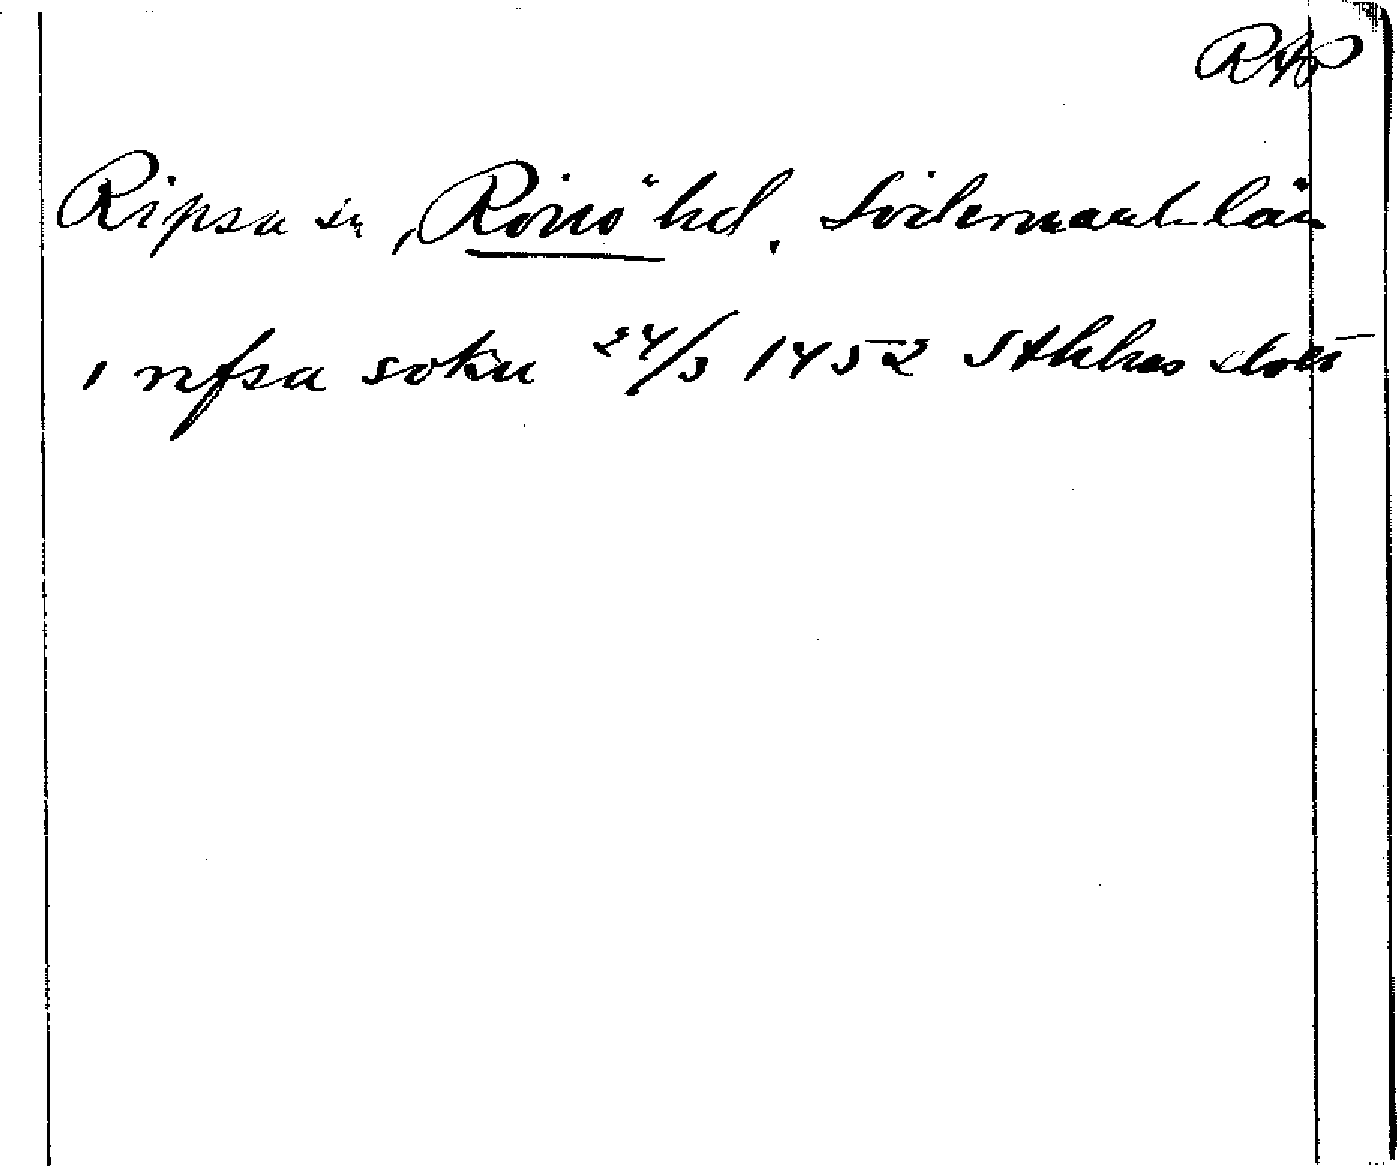 RAP
Ripsa sn, Rönö hd. Södermanl. län
i ripsa sokn 24/3 1452 Sthlms